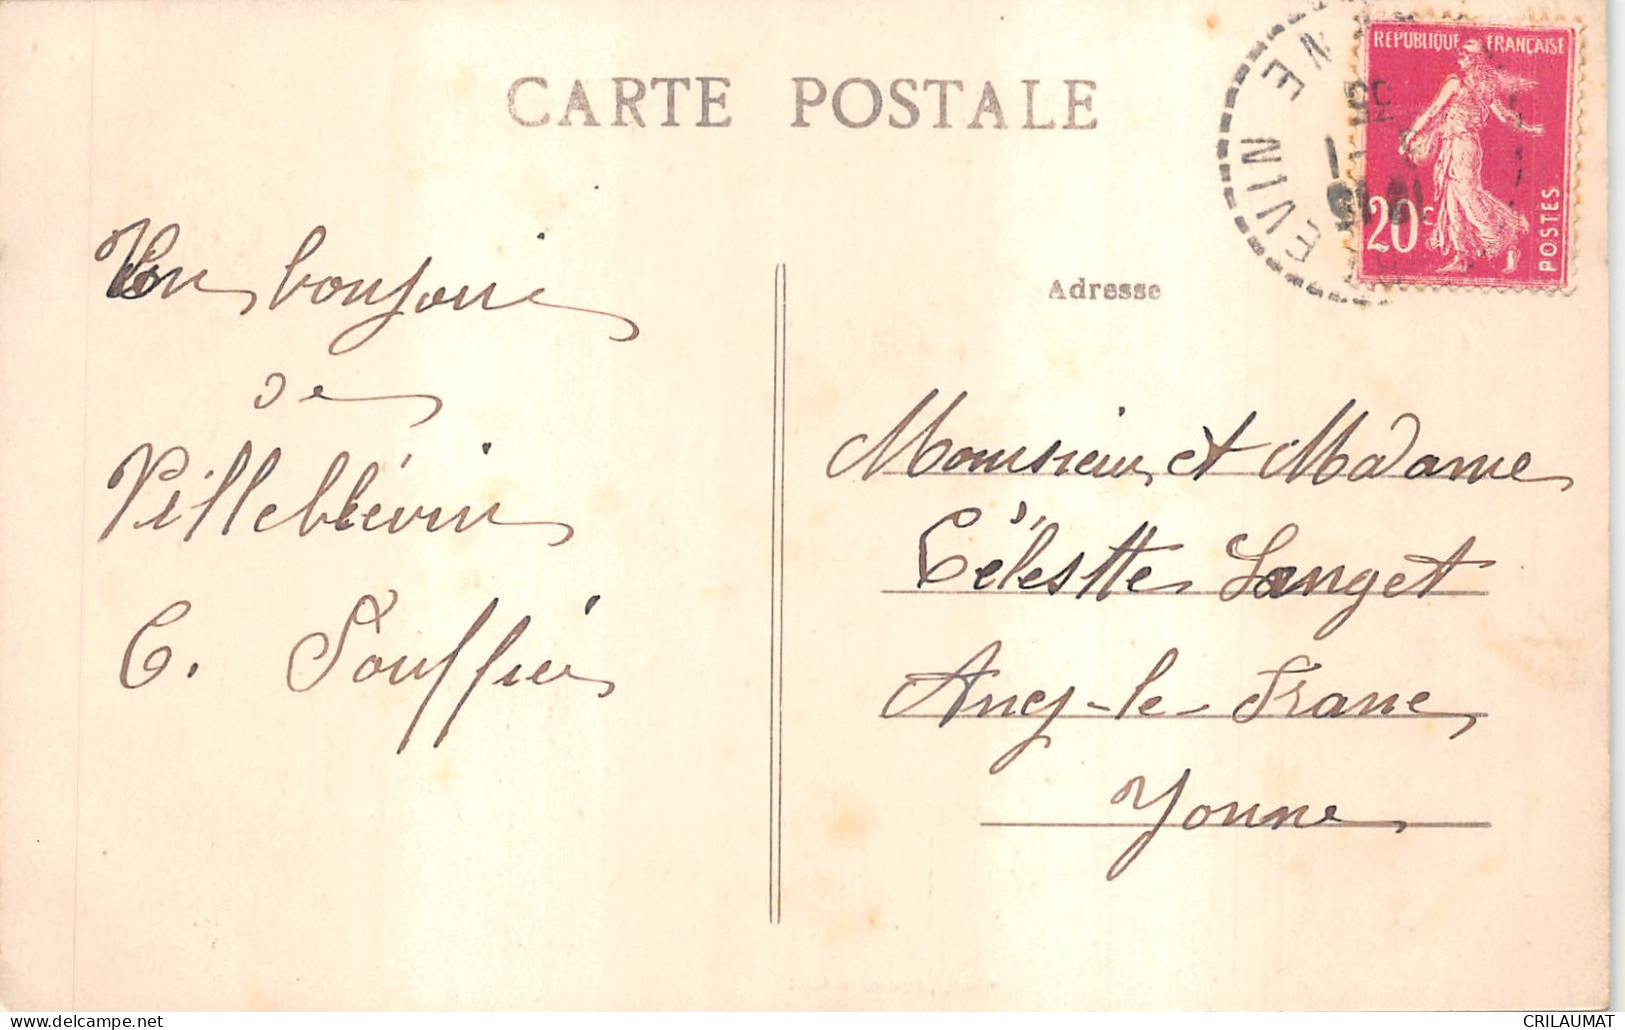 CARTE POSTALE
REPUBLIQUE FRANÇAISE
20c
POSTES
EVIN
NE
Un bonjour
de
Villeblevin
C. Souffier
Adresse
Monsieur et Madame
Célestte Langet
Ancy-le-Franc
Yonne
www.delcampe.net
CRILAUMAT